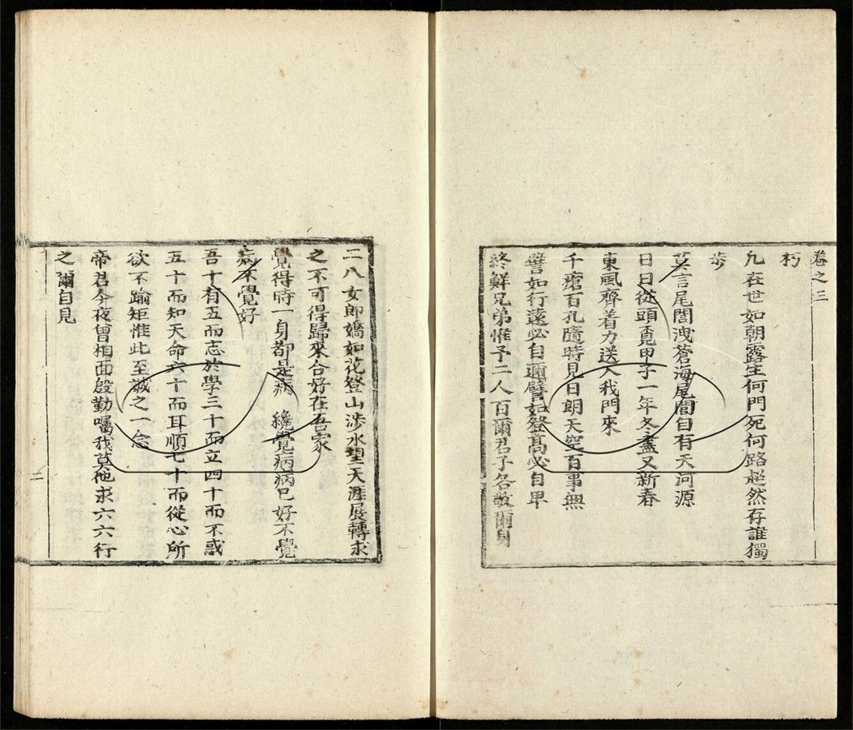 卷之三
朽
凢在世如朝露生何門死何路超然存誰獨
步
莫言尾閭洩蒼海尾閭自有天河源
日日從頭覔甲子一年冬盡又新春
東風齊着力送入我門來
千瘡百孔隨時見日朗天空百事無
譬如行遠必自邇譬如登髙必自卑
終鮮兄弟惟予二人百爾君子各敬爾身
二八女郎嬌如花登山涉水望天涯展轉求
之不可得歸來合好在吾家
覺得時一身都是病纔覺病病已好不覺
病不覺好
吾十有五而志於學三十而立四十而不惑
五十而知天命六十而耳順七十而從心所
欲不踰矩惟此至誠之一念
帝君今夜曾相面殷勤囑我莫他求六六行
之爾自見